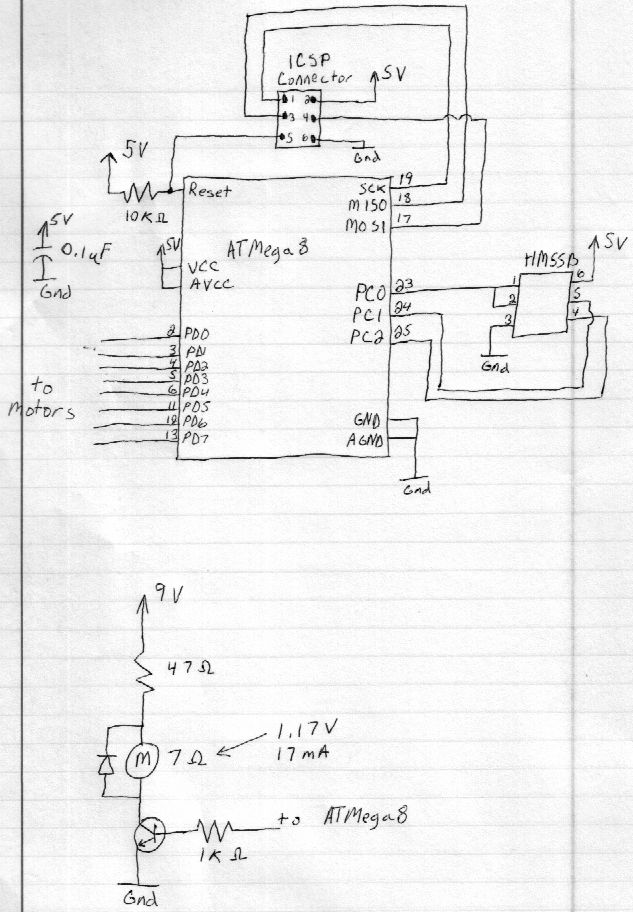 ICSP
Connector
5V
1 2
3 4
5 6
Gnd
5V
10KΩ
Reset
SCK 19
MISO 18
MOSI 17
5V
0.1uF
Gnd
5V
ATMega8
VCC
AVCC
HM55B
5V
PC0 23
PC1 24
PC2 25
1 6
2 5
3 4
Gnd
2 PD0
3 PD1
4 PD2
5 PD3
6 PD4
11 PD5
12 PD6
13 PD7
to
motors
GND
AGND
Gnd
9V
47Ω
M 7Ω
1.17V
17mA
to ATMega8
1KΩ
Gnd